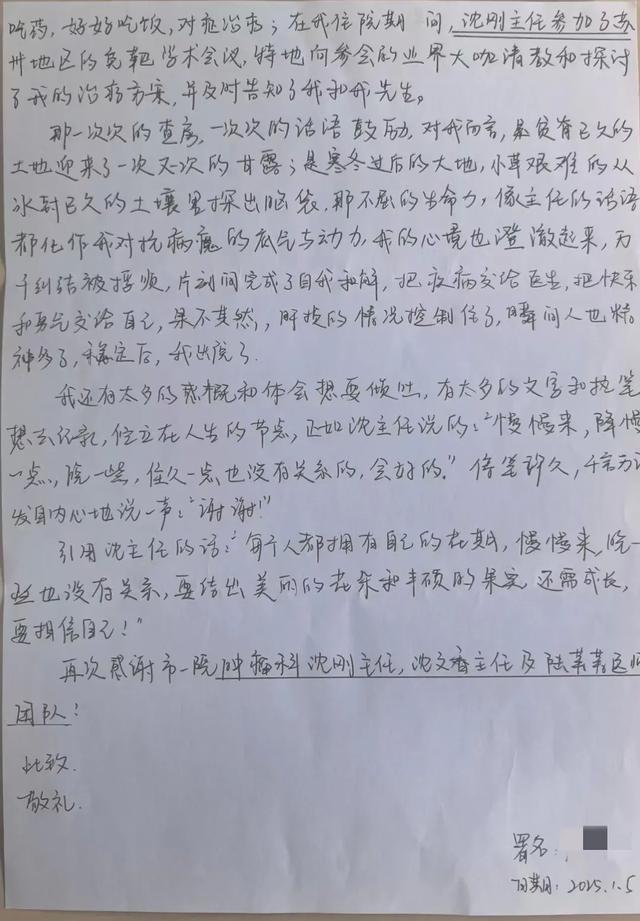 吃药，好好吃饭，对症治疗；在我住院期间，沈刚主任参加了苏
州地区的免疫学术会议，特地向参会的业界大咖请教和探讨
了我的治疗方案，并及时告知了我和我先生。
那一次次的查房，一次次的话语鼓励，对我而言，是贫瘠已久的
土地迎来了一次又一次的甘露；是寒冬过后的大地，小草艰难的从
冰封已久的土壤里探出脑袋，那不屈的生命力，像主任的话语
都化作我对抗病魔的底气与动力，我的心境也澄澈起来，万
千纠结被捋顺，片刻间完成了自我和解，把疾病交给医生，把快乐
和勇气交给自己，果不其然，肝损的情况控制住了，瞬间人也精
神多了，稳定后，我出院了.
我还有太多的感概和体会想要倾吐，有太多的文字和执笔
想去纪录，伫立在人生的节点，正如沈主任说的："慢慢来，降慢
一点，晚一些，住久一点也没有关系的，会好的." 停笔许久，千言万语
发自内心地说一声："谢谢!"
引用沈主任的话："每个人都拥有自己的花期，慢慢来，晚一
些也没有关系，要结出美丽的花朵和丰硕的果实 还需成长，
要相信自己！"
再次感谢市一院肿瘤科沈刚主任，沈文香主任及陆苇苇医师
团队！
此致
敬礼.
署名：
日期：2025.1.5